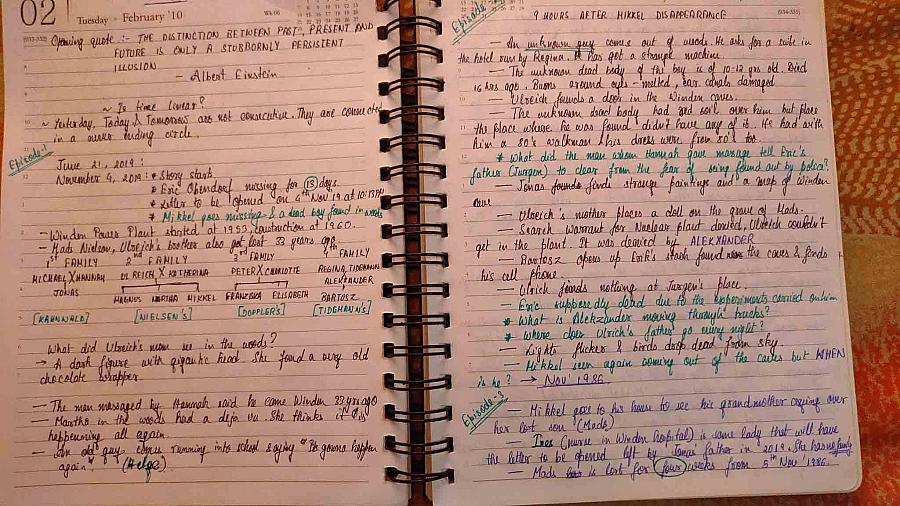 02
Tuesday • February '10
WK-06
(033-332)
Opening quote :- THE DISTINCTION BETWEEN PAST, PRESENT AND
FUTURE IS ONLY A STUBBORNLY PERSISTENT
ILLUSION
— Albert Einstein
~ Is time linear?
~ Yesterday, Today & Tomorrow are not consecutive. They are connected
in a never ending circle.
Episode-1
June 21, 2019 :
November 4, 2019 : * Story starts
* Eric Obendorf missing for 13 days
* Letter to be opened on 4th Nov 19 at 10:13PM
* Mikkel goes missing & a dead boy found in woods
— Winden Power Plant started at 1953, construction at 1960.
— Mads Nielson, Ulreich's brother also got lost 33 years ago
1st FAMILY 2nd FAMILY 3rd FAMILY 4th FAMILY
MICHAEL X HANNAH ULREICH X KATHERINA PETER X CHARLOTTE REGINA TIDEMANN
ALEKXANDER
JONAS MAGNUS MARTHA MIKKEL FRANZISKA ELISABETH BARTOSZ
[KAHNWALD] [NIELSEN'S] [DOPPLER'S] [TIDEMANN'S]
What did Ulreich's mom see in the woods?
→ A dark figure with gigantic head. She found a very old
chocolate wrapper.
— The man massaged by Hannah said he came Winden 33 yrs ago
— Martha in the woods had a deja vu. She thinks it is
happening all again
— An old guy comes running into school saying "It's gonna happen
again" (Helge)
(034-331)
Episode-2
9 HOURS AFTER MIKKEL DISAPPEARENCE
— An unknown guy comes out of woods. He asks for a suite in
the hotel run by Regina. He has got a strange machine.
— The unknown dead body of the boy is of 10-12 yrs old. Died
16 hrs ago. Burns around eyes - melted, ear canals damaged
— Ulreich founds a door in the Winden caves.
— The unknown dead body had red soil over him but place
the place where he was found didn't have any of it. He had with
him a 80's walkman & his dress were from 80's too.
* What did the man whom Hannah gave massage tell Eric's
father (Jurgen) to clear from the fear of being found out by police?
— Jonas founds finds strange paintings and a map of Winden
cave
— Ulreich's mother places a doll on the grave of Mads.
— Search warrant for Nuclear plant denied, Ulreich couldn't
get in the plant. It was denied by ALEKXANDER
— Bartosz opens up Erik's stash found near the caves & finds
his cell phone.
— Ulrich finds nothing at Jurgen's place
— Eric supposedly dead due to the experiments carried on him
* What is Alekzander moving through trucks?
* where does Ulrich's father go every night?
— Lights flicker & birds drop dead from sky.
— Mikkel seen again coming out of the caves but WHEN
is he? → Nov' 1986
Episode-3
— Mikkel goes to his house to see his grandmother crying over
her lost son (Mads)
— Ines (nurse in Winden hospital) is same lady that will have
the letter to be opened left by Jonas' father in 2019. She has no family
— Mads is lost for four weeks from 5th Nov '1986.